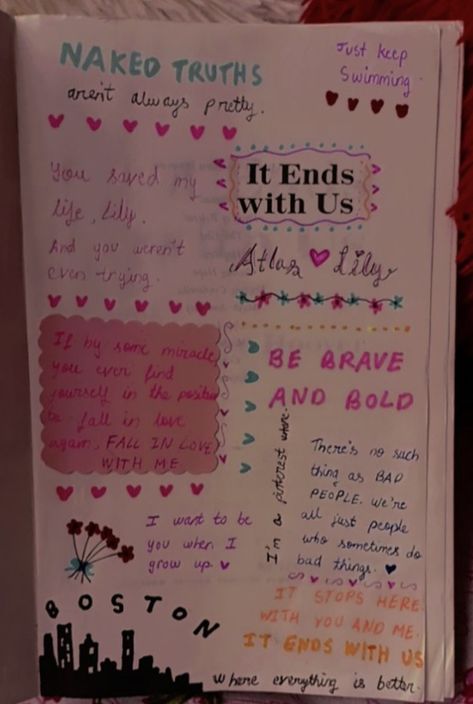 NAKED TRUTHS
aren't always pretty.
Just keep
Swimming.
You saved my
life, Lily.
And you weren't
even trying.
It Ends
with Us
Atlas Lily
If by some miracle
you ever find
yourself in the position
to fall in love
again, FALL IN LOVE
WITH ME
BE BRAVE
AND BOLD
I'm a pinterest whore.
There's no such
thing as BAD
PEOPLE. We're
all just people
who sometimes do
bad things.
I want to be
you when I
grow up
BOSTON
where everything is better.
IT STOPS HERE.
WITH YOU AND ME.
IT ENDS WITH US